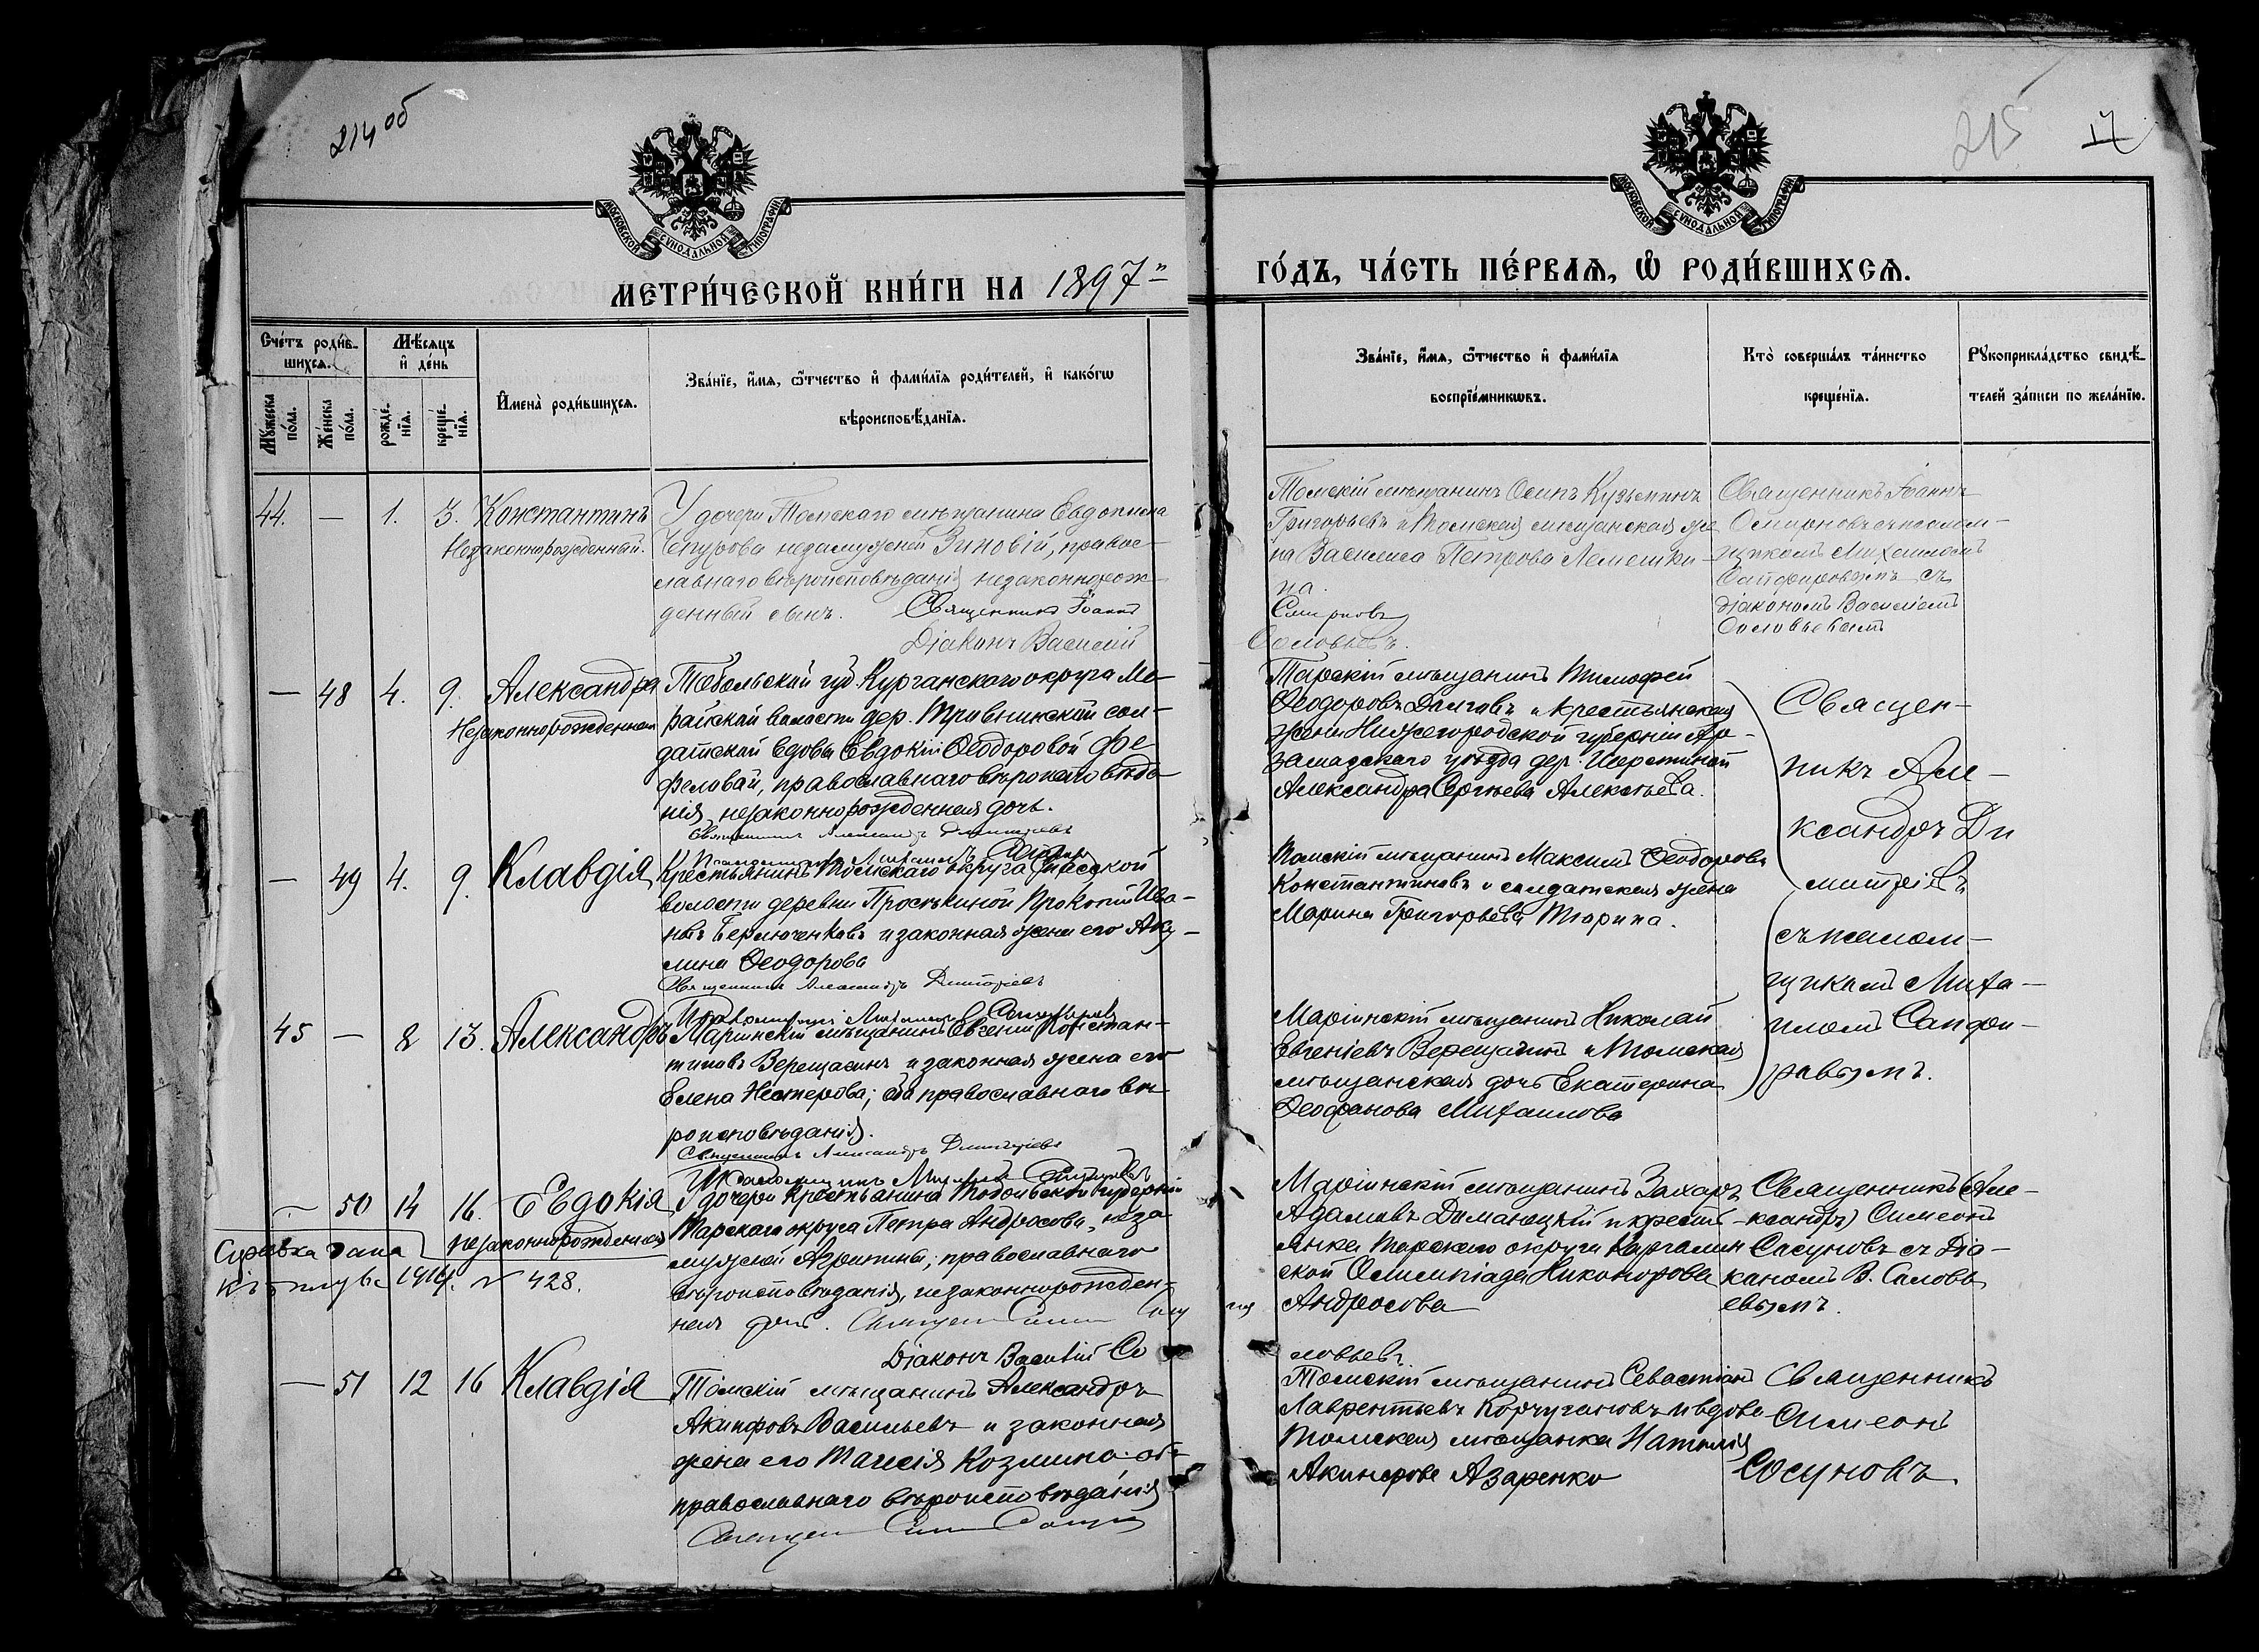 214 об
215
17
МОСКОВСКОЙ СУНОДАЛЬНОЙ ТИПОГРАФІИ
МОСКОВСКОЙ СУНОДАЛЬНОЙ ТИПОГРАФІИ
МЕТРИ́ЧЕСКОЙ КНИ́ГИ НА 1897
ГО́ДЪ, ЧА́СТЬ ПЕ́РВАѦ, Ѡ҆ РОДИ́ВШИХСѦ.
Сче́тъ роди́в-
шихсѧ.
Мѣ́сѧцъ
и҆ де́нь
Мꙋ́жеска по́ла.
Же́нска по́ла.
рожде́-нїѧ.
креще́-нїѧ.
И҆мена̀ роди́вшихсѧ.
Зва́нїе, и҆́мѧ, ѻ҆́тчество и҆ фами́лїѧ роди́телей, и҆ како́гѡ
вѣроисповѣ́данїѧ.
Зва́нїе, и҆́мѧ, ѻ҆́тчество и҆ фами́лїѧ
воспрїе́мникѡвъ.
Кто̀ соверша́лъ та́инство
креще́нїѧ.
Рꙋкоприкла́дство свидѣ́-
телей за́писи по жела́нїю.
44. — 1. 3. Константинъ
Незаконнорожденный.
У дочери Томскаго мѣщанина Евдокима
Чепурова незамужней Зиновіи, правос-
лавнаго вѣроисповѣданія незаконнорож-
денный сынъ. Священникъ Іоаннъ
Діаконъ Василій
Томскій мѣщанинъ Осипъ Кузьминъ
Григорьевъ и Томская мѣщанская же
на Василиса Петрова Лемешки-
на.
Смирновъ
Соловьевъ.
Священникъ Іоаннъ
Смирновъ съ псалом-
щикомъ Михаиломъ
Сапфировымъ съ
діакономъ Василіемъ
Соловьевымъ
— 48 4. 9. Александра
Незаконнорожденная
Тобольской губ. Курганскаго округа Мо-
райской волости дер. Травнинской сол-
датской вдовы Евдокіи Ѳеодоровой Фе
феловой, православнаго вѣроисповѣда
нія, незаконнорожденная дочь.
Священникъ Александръ Димитріевъ
Псаломщикъ Михаилъ Сапфировъ
Тарскій мѣщанинъ Тимофей
Ѳеодоровъ Долговъ и крестьянская
жена Нижегородской губерніи Ар-
замасскаго уѣзда дер.
Александра Сергѣева Алексѣева.
Священ-
никъ Але-
ксандръ Ди
митріевъ
съ псалом-
щикомъ Миха-
иломъ Сапфи-
ровымъ.
— 49 4. 9. Клавдія
Крестьянинъ Томскаго округа Спасской
волости деревни Проскиной Прокопій Ива-
новъ Берлюченковъ и законная жена его Аку-
лина Ѳеодорова
Священникъ Александръ Димитріевъ
Псаломщикъ Михаилъ Сапфировъ
Томскій мѣщанинъ Максимъ Ѳеодоровъ
Константиновъ и солдатская жена
Марина Григорьева Тюрина.
45 — 8 13. Александръ
Маріинскій мѣщанинъ Евгеній Констан-
тиновъ Верещагинъ и законная жена его
Елена Нестерова; оба православнаго вѣ-
роисповѣданія.
Священникъ Александръ Димитріевъ
Псаломщикъ Михаилъ Сапфировъ
Маріинскій мѣщанинъ Николай
Евгеніевъ Верещагинъ и Томская
мѣщанская дочь Екатерина
Ѳеофанова Михаилова
— 50 14 16. Евдокія
незаконнорожденная
Справка дана
1914г. № 428.
У дочери крестьянина Тобольской губерніи
Тарскаго округа Петра Андросова, неза
мужней Агрипины; православнаго
вѣроисповѣданія, незаконнорожден-
ная дочь.
Діаконъ Василій Со
ловьевъ.
Маріинскій мѣщанинъ Захаръ
Адамовъ Доманоцкій и крестья-
янка Тарскаго округа
Олимпіада Никонорова
Андросова
Священникъ (Але-
ксандръ) Симеонъ
Сосуновъ съ Діа-
кономъ В. Соловь
евымъ.
— 51 12 16 Клавдія
Томскій мѣщанинъ Александръ
Акинфовъ Васильевъ и законная
жена его Таисія Козмина оба
православнаго вѣроисповѣданія
Томскій мѣщанинъ Севастіанъ
Лаврентьевъ Корчугановъ и вдова
Томская мѣщанка Наталія
Акинфова Азаренко
Священникъ
Симеонъ
Сосуновъ.